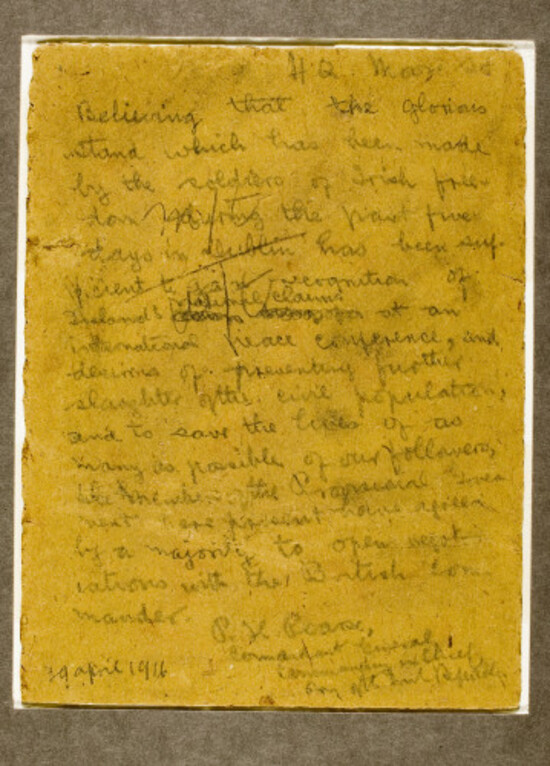 H Q. Moore St
Believing that the glorious
stand which has been made
by the soldiers of Irish free-
dom during the past five
days in Dublin has been suf-
ficient to gain recognition of
Ireland's national claim at an
international peace conference, and
desirous of preventing further
slaughter of the civil population,
and to save the lives of as
many as possible of our followers,
the members of the Provisional Govern-
ment here present have agreed
by a majority to open negot-
iations with the British Com-
mander.
P. H. Pearse,
Commandant General,
Commanding in Chief,
Army of the Irish Republic
29 april 1916